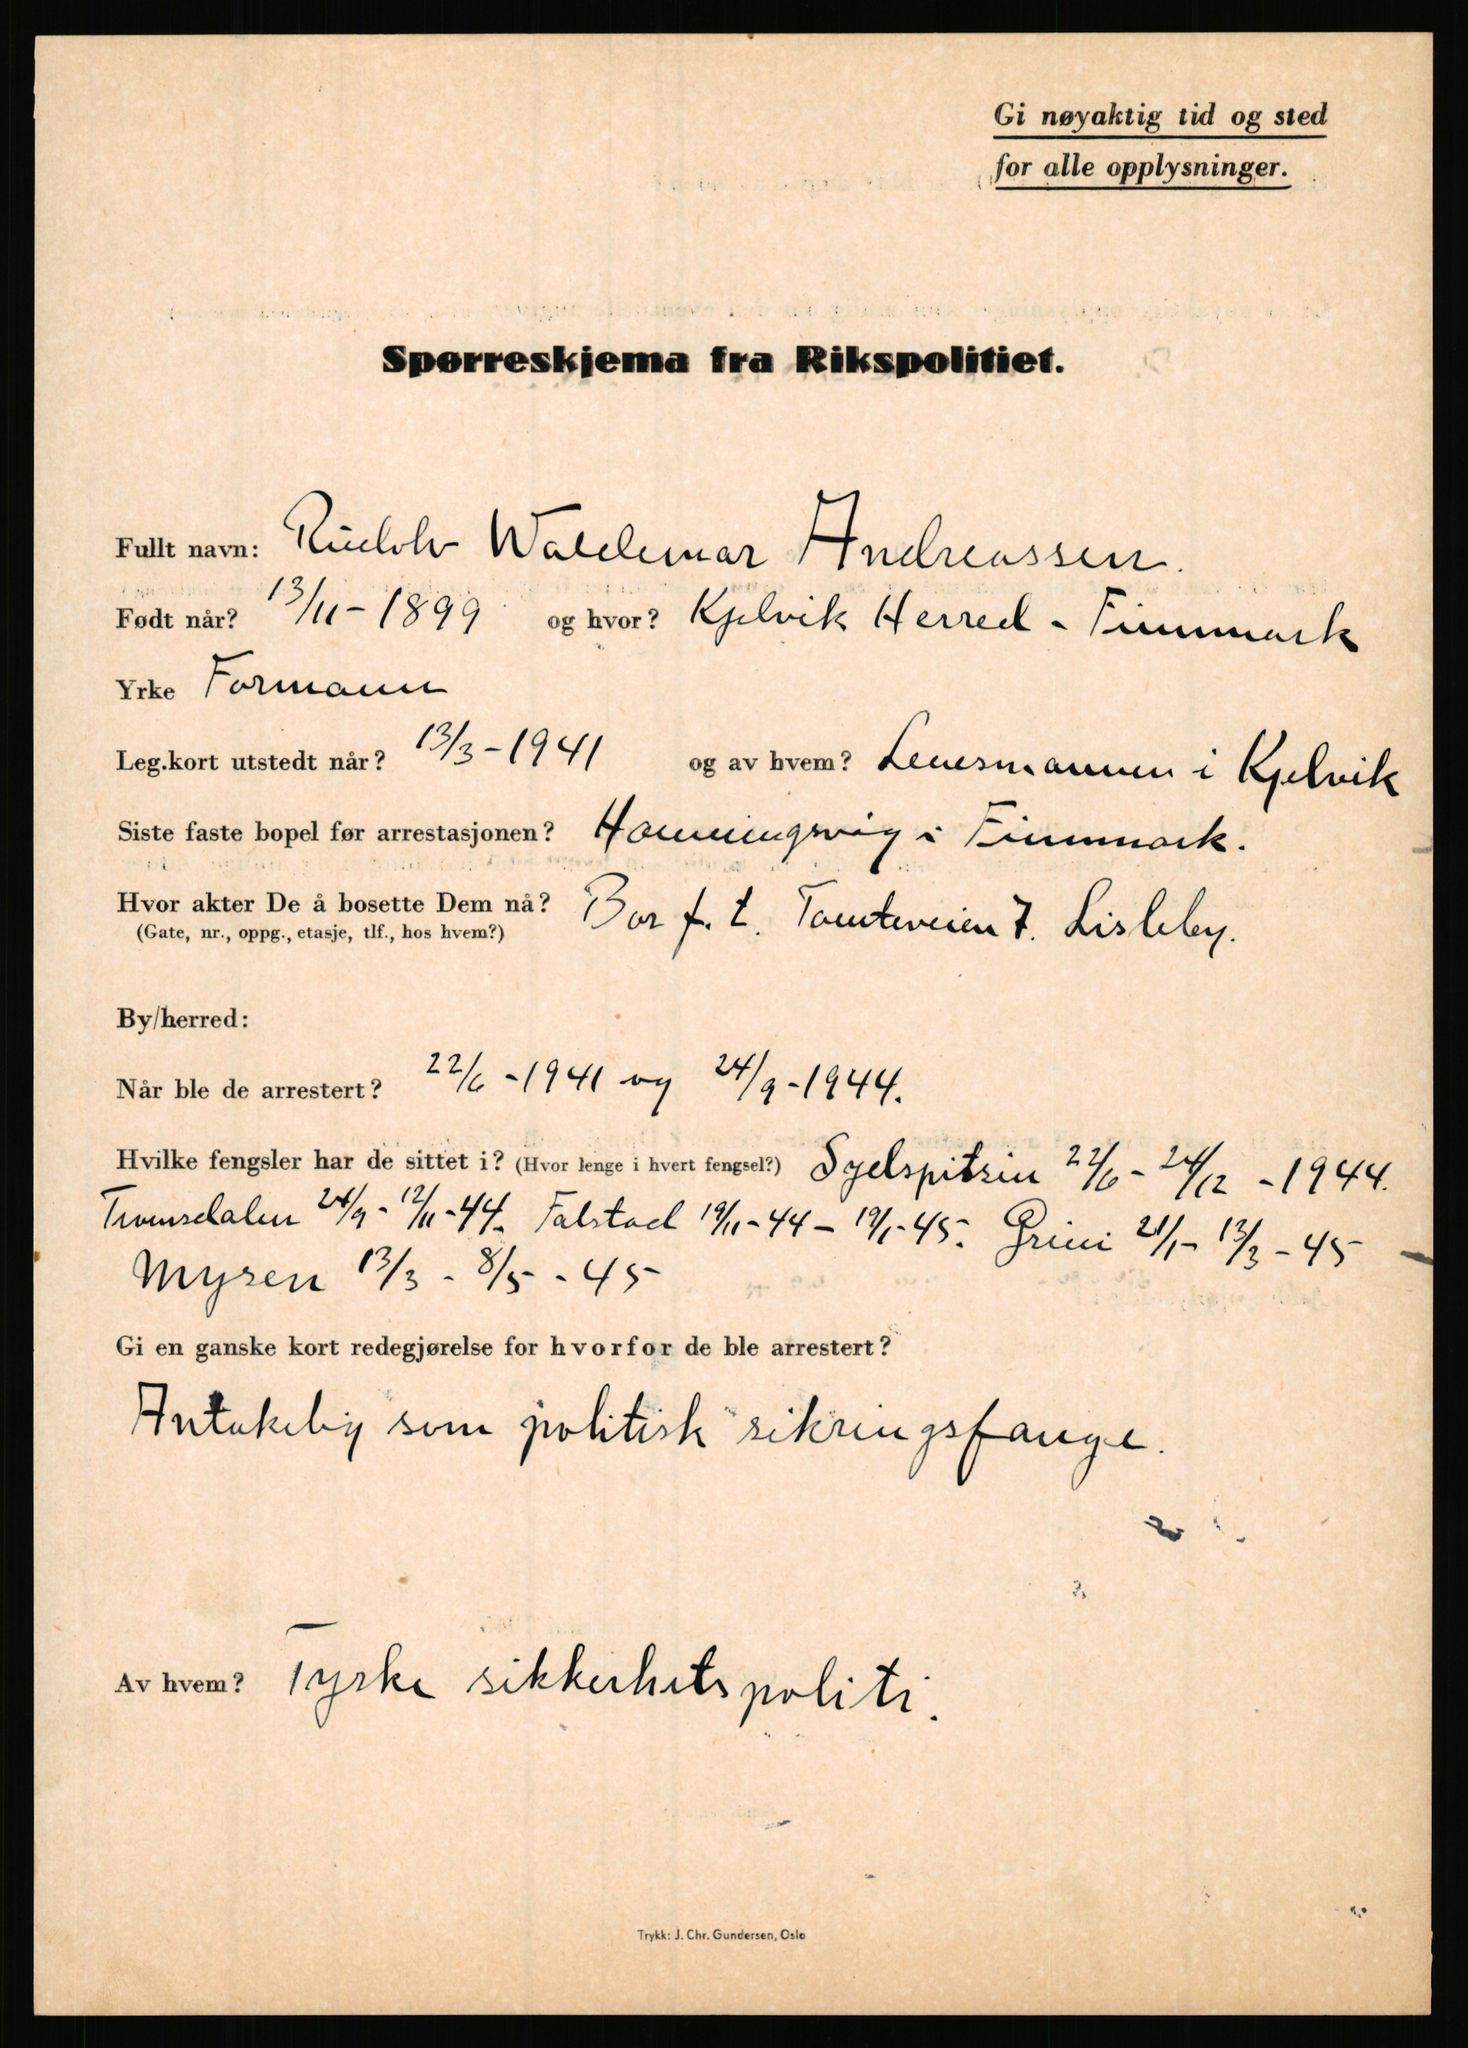 Gi nøyaktig tid og sted
for alle opplysninger.
Spørreskjema fra Rikspolitiet.
Fullt navn: Rudolv Waldemar Andreassen.
Født når? 13/11 - 1899 og hvor? Kjelvik Herred - Finnmark
Yrke Formann
Leg.kort utstedt når? 13/3 - 1941 og av hvem? Lensmannen i Kjelvik
Siste faste bopel før arrestasjonen? Honningsvåg i Finnmark.
Hvor akter De å bosette Dem nå? Bor f. t. Tomteveien 7. Lisleby.
(Gate, nr., oppg., etasje, tlf., hos hvem?)
By/herred:
Når ble de arrestert? 22/6 - 1941 og 24/9 - 1944.
Hvilke fengsler har de sittet i? (Hvor lenge i hvert fengsel?) Sydspitsen 22/6 - 24/12 - 1944.
Tromsdalen 24/9 - 12/11 - 44. Falstad 19/11 - 44 - 19/1 - 45. Grini 21/1 - 13/3 - 45
Mysen 13/3 - 8/5 - 45
Gi en ganske kort redegjørelse for hvorfor de ble arrestert?
Antakelig som politisk sikringsfange.
Av hvem? Tyske sikkerhetspoliti.
Trykk: J. Chr. Gundersen, Oslo